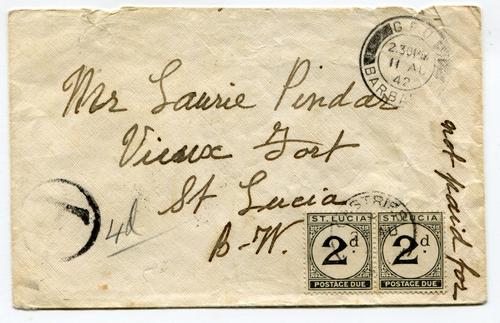 G.P.O.
2.30 PM
11 AU
42
BARBA
Mr Laurie Pindar
Vieux Fort
St Lucia
B-W.
not paid for
T
4d
ST. LUCIA
2d
POSTAGE DUE
ST. LUCIA
2d
POSTAGE DUE
AU